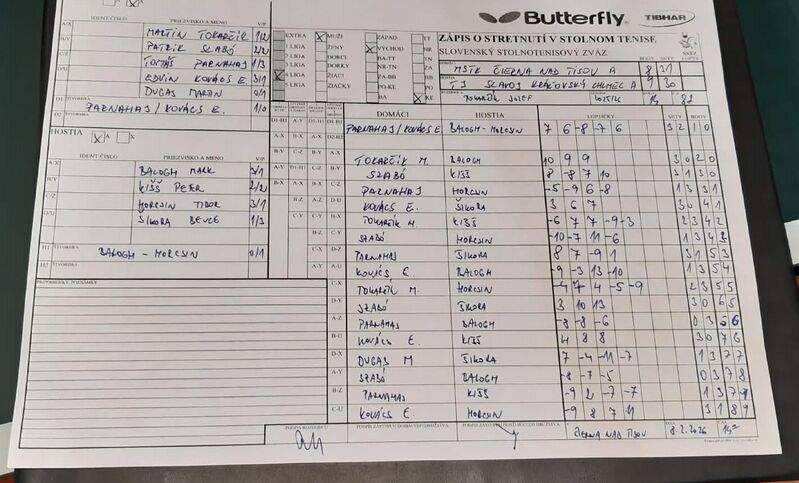 Butterfly TIBHAR
IDENT ČÍSLO PRIEZVISKO A MENO V/P
A/X MARTIN TOKARČÍK 1/2
B/Y PATRIK SZABÓ 2/2
C/Z TOMÁŠ PARNAHAJ 1/3
D/U EDVIN KOVÁCS E. 3/1
DUGAS MARTIN 0/1
D1 PARNAHAJ/KOVÁCS E. 1/0
D2
EXTRA MUŽI ZÁPAD TT
I LIGA ŽENY VÝCHOD NR
LIGA DORCI BA-TT TN
LIGA DORKY NR-TN ZA
LIGA ŽIACI ZA-BB BB
LIGA ŽIAČKY PO-KE PO
BA KE
ZÁPIS O STRETNUTÍ V STOLNOM TENISE
SLOVENSKÝ STOLNOTENISOVÝ ZVÄZ
MSTK ČIERNA NAD TISOU A 8 31
TJ SLAVOJ KRÁĽOVSKÝ CHLMEC A 9 30
HOSTIA A X
IDENT ČÍSLO PRIEZVISKO A MENO V/P
A/X BALOGH MARK 3/1
B/Y KIŠŠ PETER 2/2
C/Z MORCSIN TIBOR 3/1
D/U ŠIKORA BENCE 1/3
H1 ŠTVORHRA BALOGH - MORCSIN 0/1
H2 ŠTVORHRA
PRIPOMIENKY, POZNÁMKY
DOMÁCI HOSTIA LOPTIČKY SETY BODY
PARNAHAJ/KOVÁCS E. BALOGH-MORCSIN 7 6 -8 -7 6 3 2 1 0
TOKARČÍK M. BALOGH 10 9 9 3 0 2 0
SZABÓ KIŠŠ 8 -8 7 10 3 1 3 0
PARNAHAJ MORCSIN -5 -9 6 -8 1 3 3 1
KOVÁCS E. ŠIKORA 3 6 7 3 0 4 1
TOKARČÍK M. KIŠŠ -6 7 7 -9 -3 2 3 4 2
SZABÓ MORCSIN -10 -7 11 -6 1 3 4 3
PARNAHAJ ŠIKORA 8 7 -9 1 3 1 5 3
KOVÁCS E BALOGH -9 -3 13 -10 1 3 5 4
C-X TOKARČÍK M. MORCSIN -4 7 4 -5 -9 2 3 5 5
D-Y SZABÓ ŠIKORA 3 10 13 3 0 6 5
A-Z PARNAHAJ BALOGH -8 -8 -6 0 3 6 6
B-U KOVÁCS E. KIŠŠ 4 8 8 3 0 7 6
D-X DUGAS M ŠIKORA 7 -4 -11 -7 1 3 7 7
A-Y SZABÓ BALOGH -8 -7 -5 0 3 7 8
B-Z PARNAHAJ KIŠŠ -9 2 -7 -7 1 3 7 9
C-U KOVÁCS E. MORCSIN -9 8 7 11 3 1 8 9
ČIERNA NAD TISOU 8.2.2026